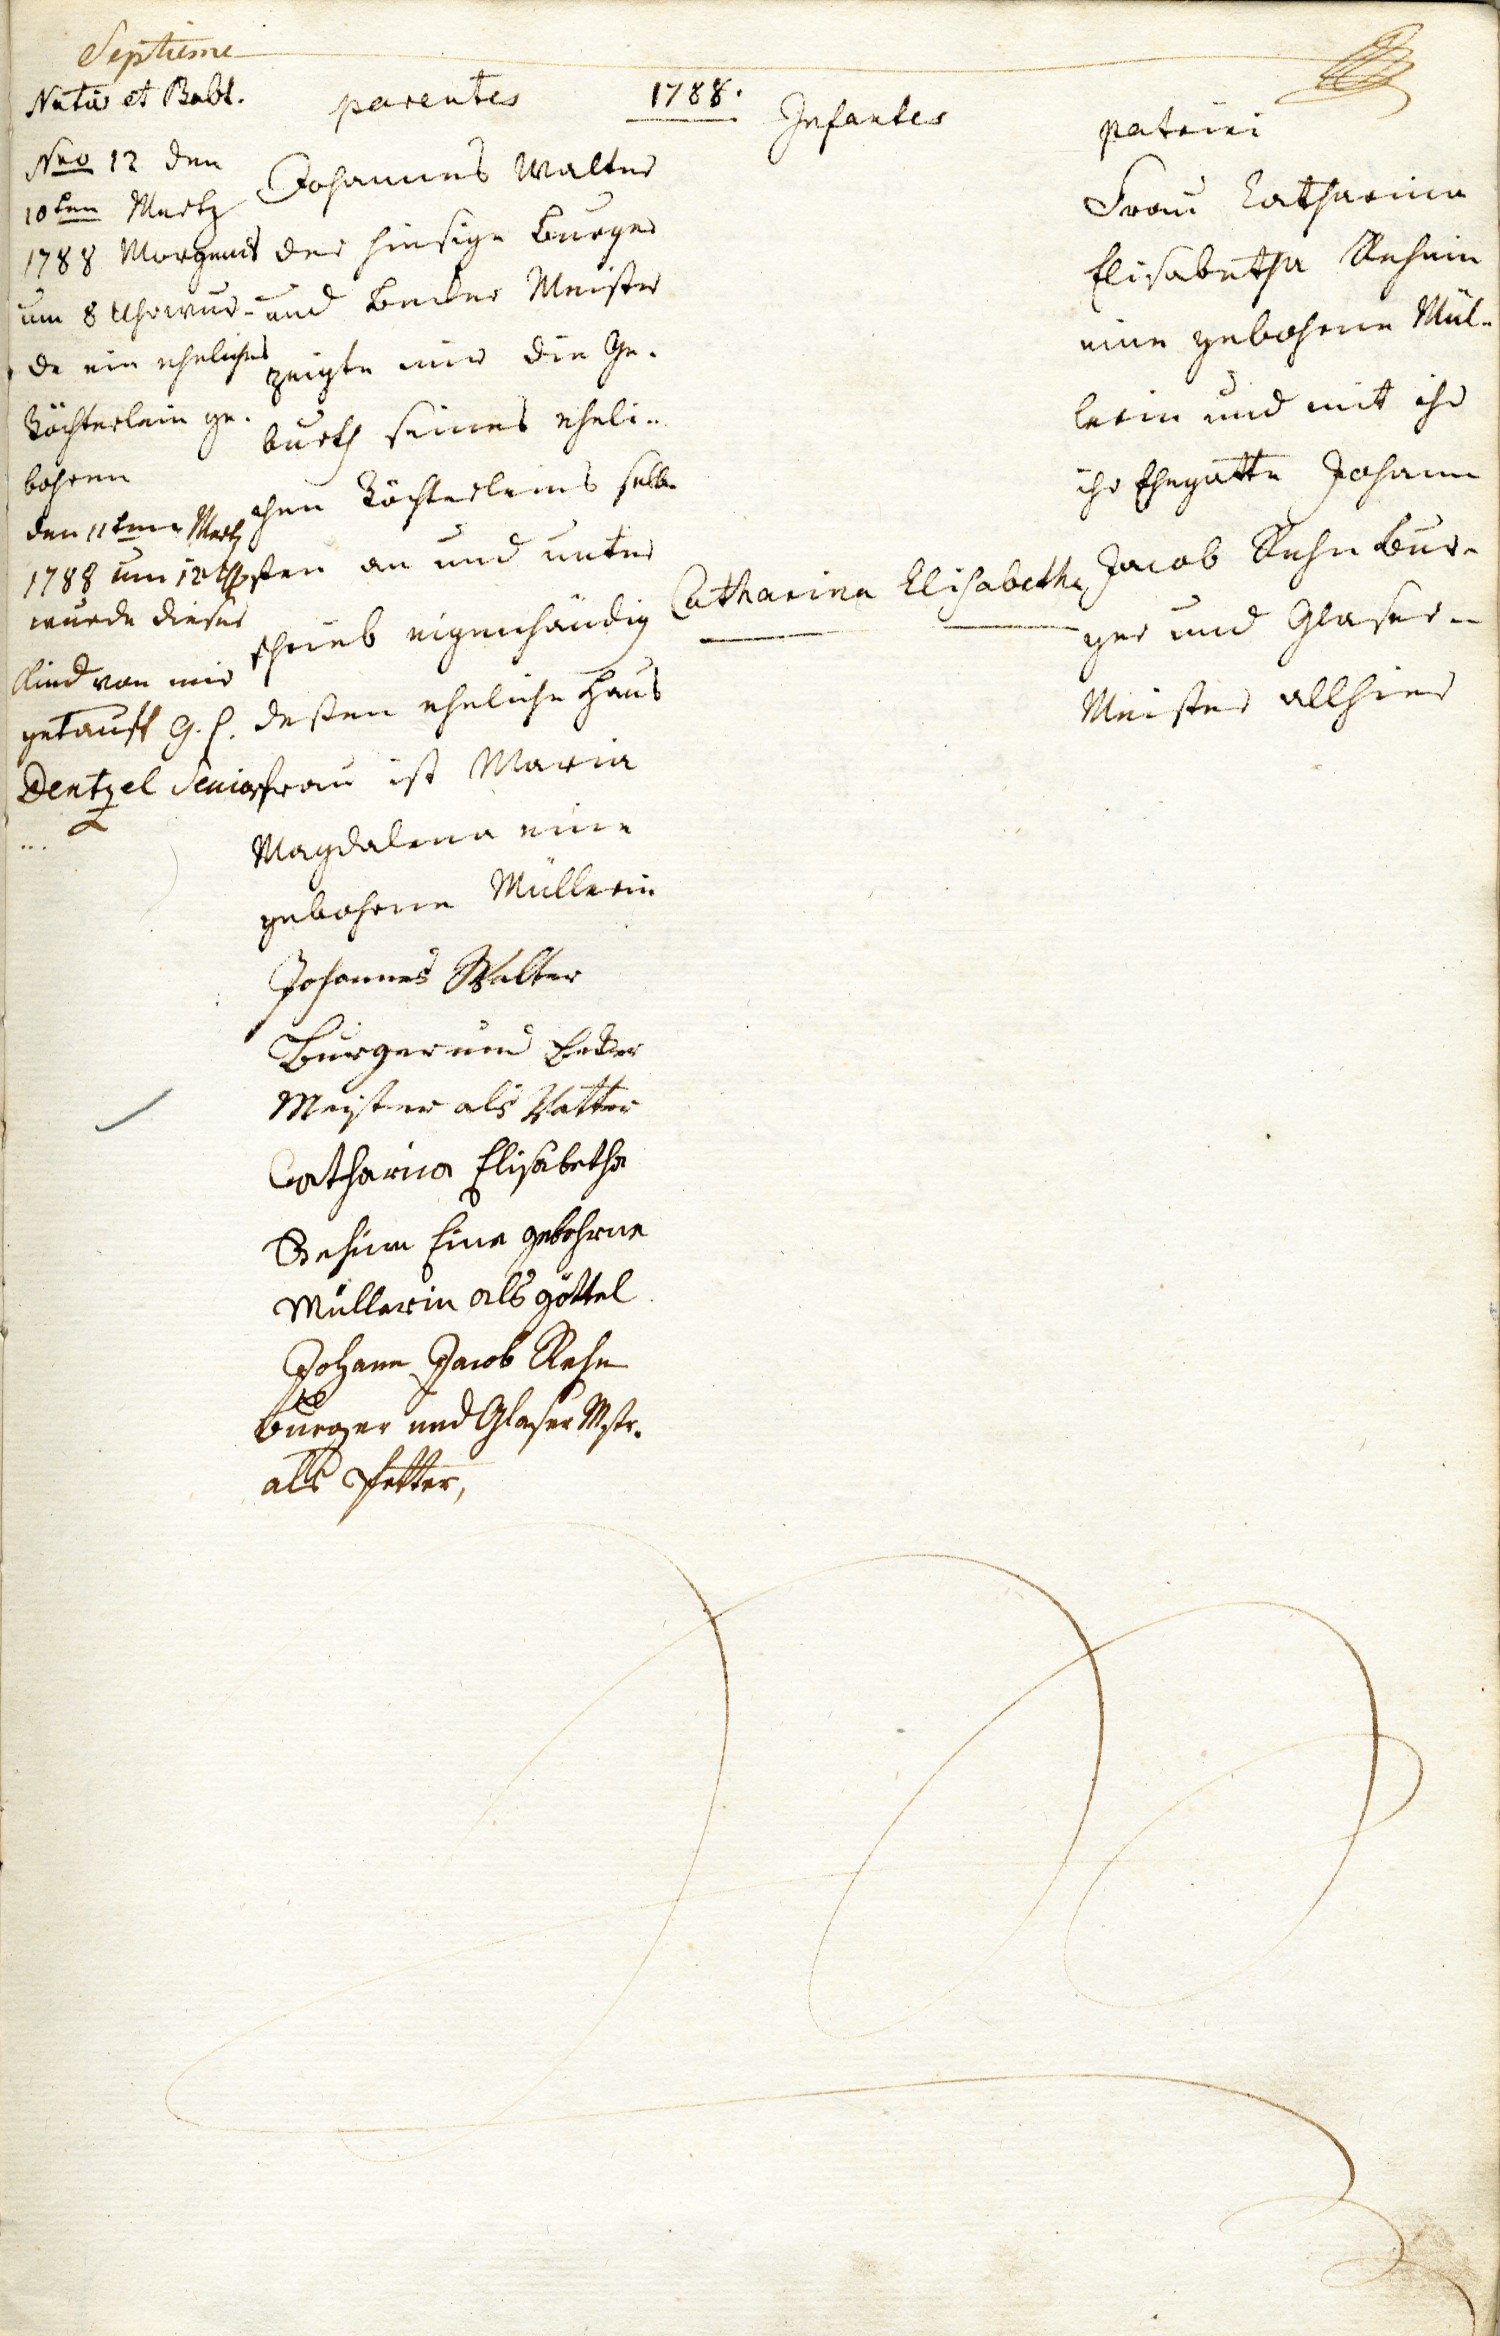 Septieme
Natus et Babt.
Nro 12 den
10ten Mertz
1788 Morgens
um 8 Uhr wur-
de ein eheliches
Töchterlein ge-
bohren
den 11ten Mertz
1788 um 12 Uhr
wurde dieses
Kind von mir
getauft G. P.
Dentzel Senior
parentes
Johannes Walter
der hiesige Burger
und Becker Meister
zeigte mir die Ge-
burth seines eheli-
chen Töchterleins selb-
sten an und unter
schrieb eigenhändig
desten eheliche Haus
frau ist Maria
Magdalena eine
gebohrne Müllerin
Johannes Walter
Burger und Becker
Meister als Vatter
Catharina Elisabetha
Rehin Eine gebohrne
Müllerin als göttel
Johann Jacob Rehn
burger und Glaser Mstr.
als Petter,
1788.
Infantes
Catharina Elisabetha
patrini
Frau Catharina
Elisabetha Rehnin
eine gebohrne Mül-
lerin und mit ihr
ihr Ehegatte Johann
Jacob Rehn Bur-
ger und Glaser-
Meister allhier